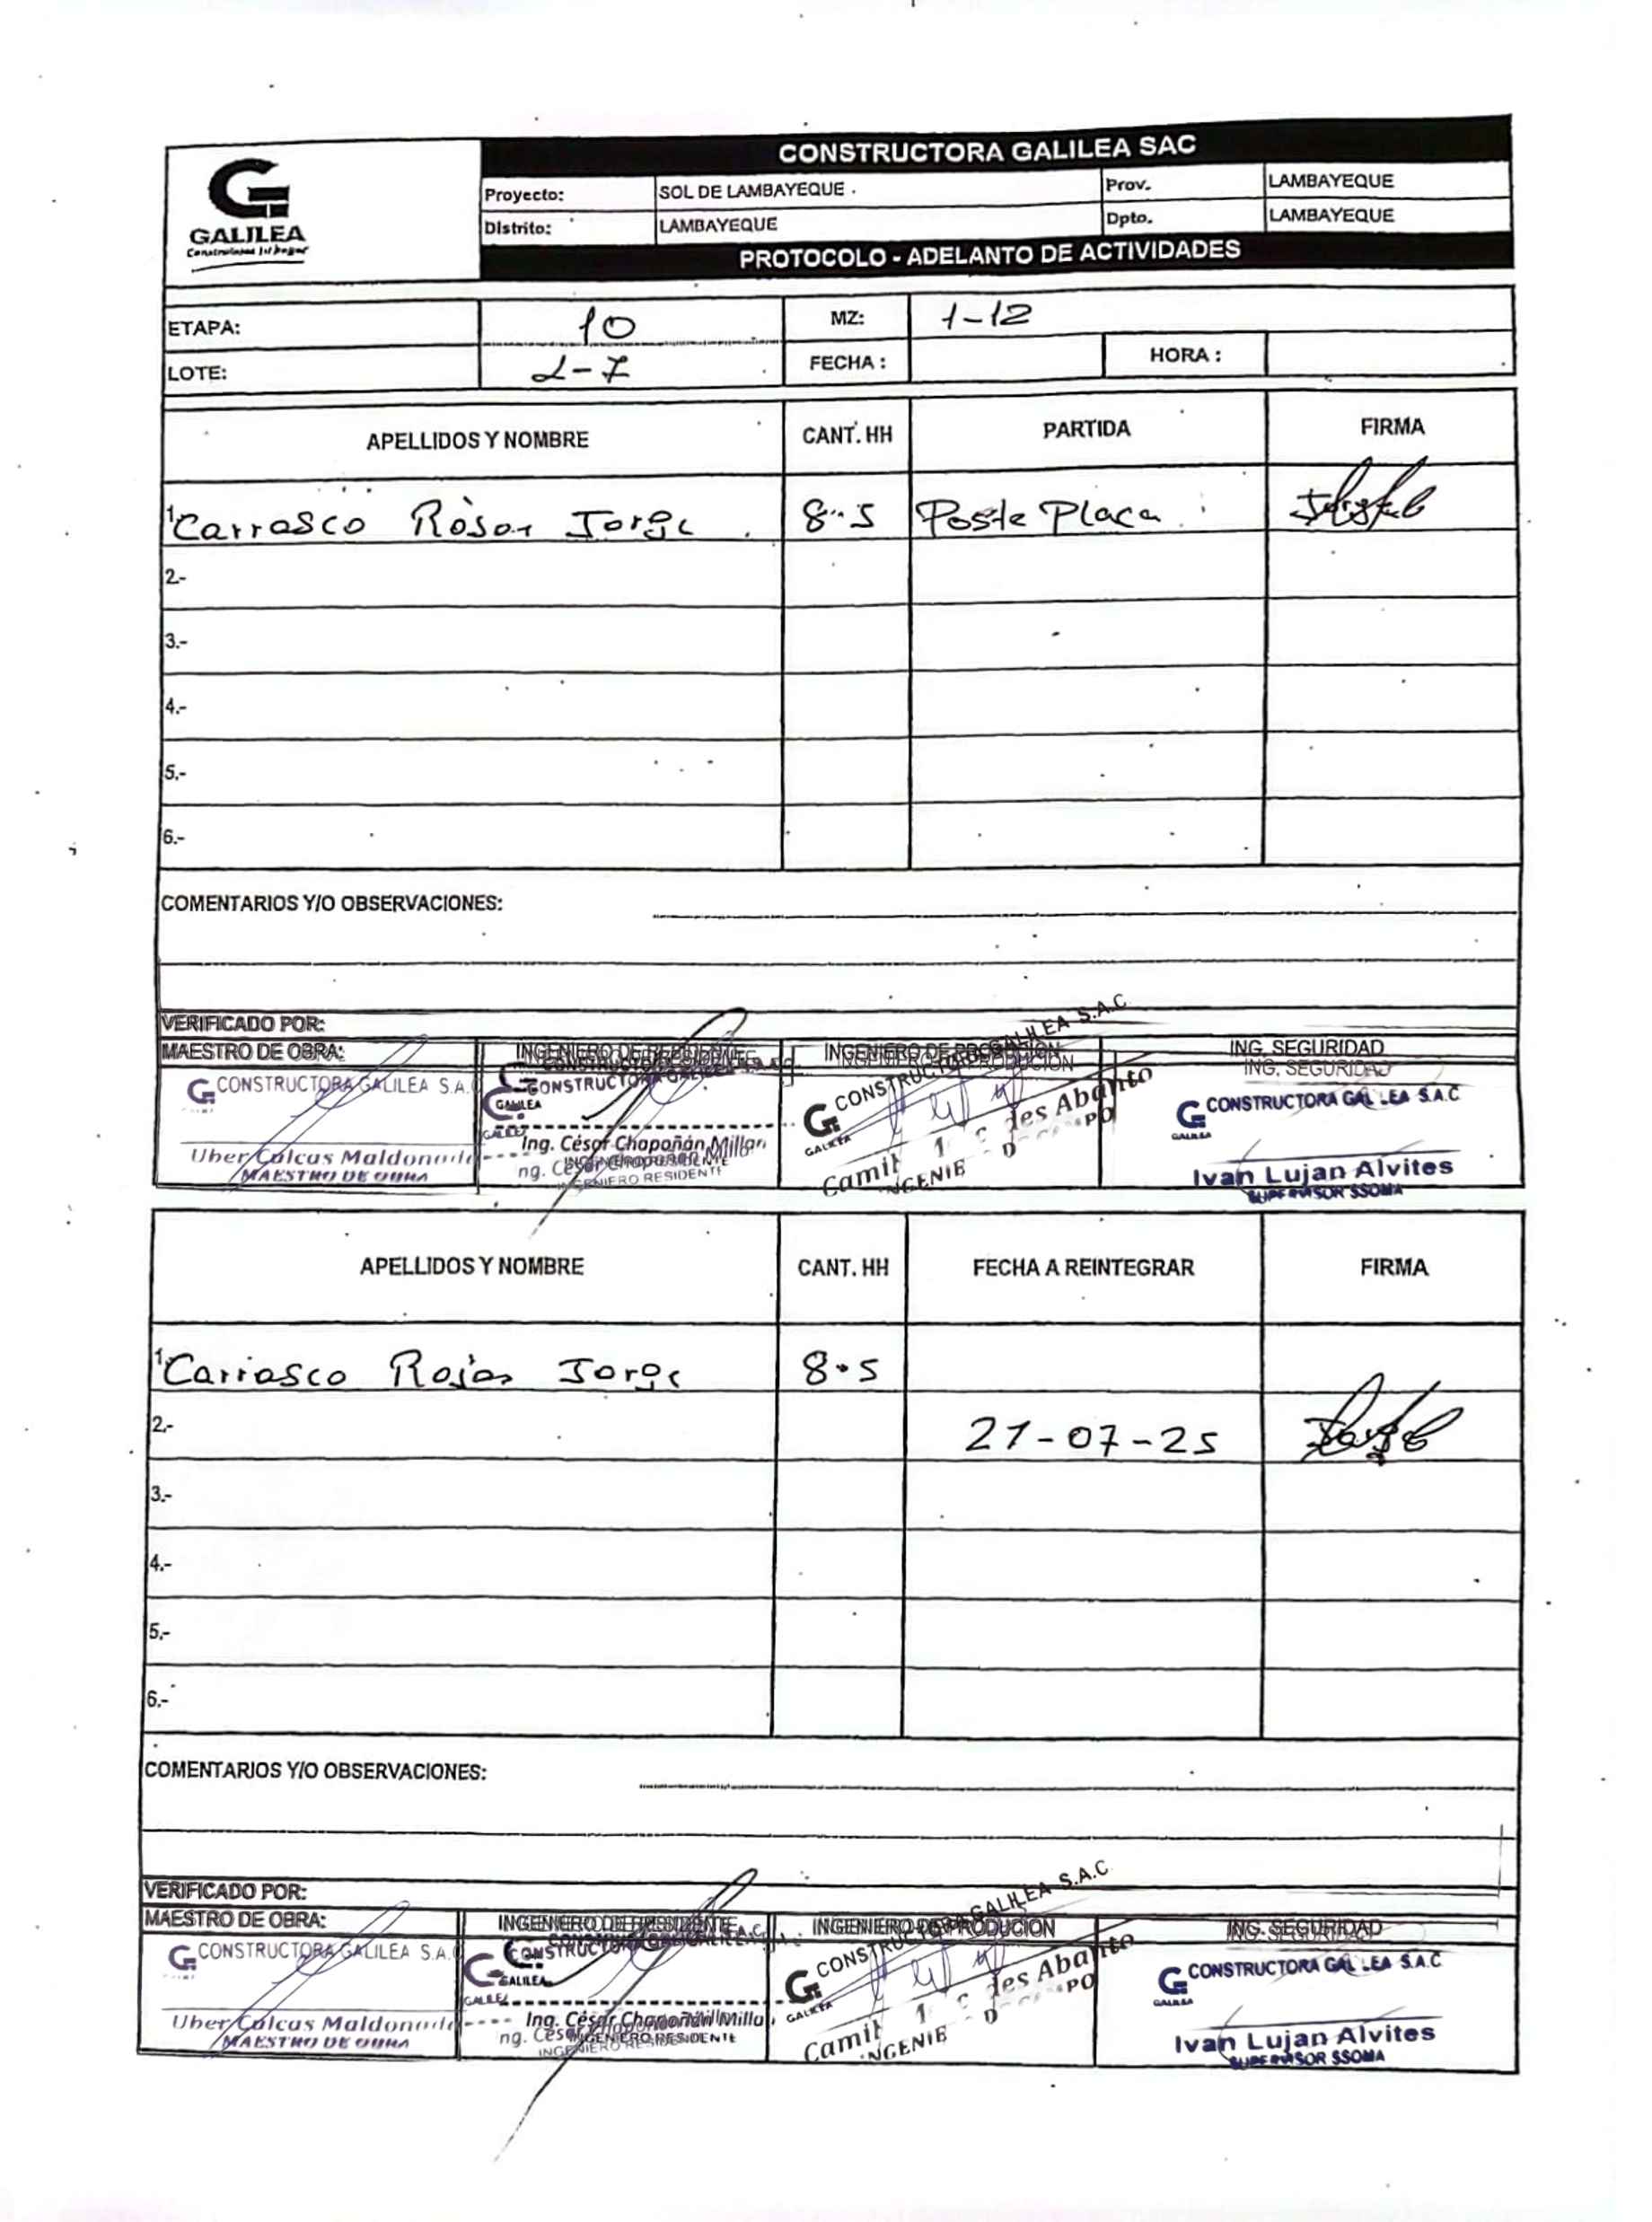 CONSTRUCTORA GALILEA SAC
GALILEA
Construimos tu hogar
Proyecto: SOL DE LAMBAYEQUE . Prov. LAMBAYEQUE
Distrito: LAMBAYEQUE Dpto. LAMBAYEQUE
PROTOCOLO - ADELANTO DE ACTIVIDADES
ETAPA: 10 MZ: 1-12
LOTE: 2-7 FECHA : HORA :
APELLIDOS Y NOMBRE CANT. HH PARTIDA FIRMA
1 Carrasco Rojas Jorge 8.5 Poste Placa
2.-
3.-
4.-
5.-
6.-
COMENTARIOS Y/O OBSERVACIONES:
VERIFICADO POR:
MAESTRO DE OBRA: INGENIERO DE RESIDENTE INGENIERO DE PRODUCIÓN ING. SEGURIDAD
ING. SEGURIDAD
CONSTRUCTORA GALILEA S.A. CONSTRUCTORA GALILEA CONSTRUCTORA GALILEA S.A.C. CONSTRUCTORA GALILEA S.A.C
GALILEA GALILEA GALILEA
Uber Culcas Maldonado Ing. César Chapoñán Millan Camil des Abanto Ivan Lujan Alvites
MAESTRO DE OBRA INGENIERO RESIDENTE SUPERVISOR SSOMA
APELLIDOS Y NOMBRE CANT. HH FECHA A REINTEGRAR FIRMA
1 Carrasco Rojas Jorge 8.5
2.- 21-07-25
3.-
4.-
5.-
6.-
COMENTARIOS Y/O OBSERVACIONES:
VERIFICADO POR:
MAESTRO DE OBRA: INGENIERO DE RESIDENTE INGENIERO DE PRODUCIÓN ING. SEGURIDAD
CONSTRUCTORA GALILEA S.A. CONSTRUCTORA GALILEA CONSTRUCTORA GALILEA S.A.C CONSTRUCTORA GALILEA S.A.C
GALILEA GALILEA GALILEA
Uber Culcas Maldonado Ing. César Chapoñán Milla Camil des Abanto Ivan Lujan Alvites
MAESTRO DE OBRA INGENIERO RESIDENTE SUPERVISOR SSOMA